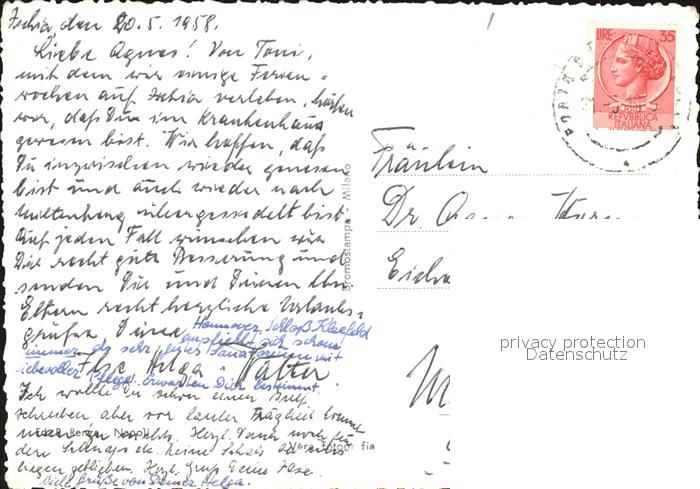 Ischia den 20.5.1958.
Liebe Agnes! Von Toni,
mit dem wir einige Ferien-
wochen auf Ischia verleben, hörten
wir, daß Du im Krankenhaus
gewesen bist. Wir hoffen, daß
Du inzwischen wieder genesen
bist und auch wieder nach
Miltenberg übergesiedelt bist.
Auf jeden Fall wünschen wir
Dir recht gute Besserung und
senden Dir und Deinen lben
Eltern recht herzliche Urlaubs-
grüße Deine
Hannover, Schloß Kleefeld
empfiehlt sich schon
immer als sehr gutes Sanatorium mit
liebevoller Pflege. Erwarten Dich bestimmt.
Ilse Helga Walter
Ich wollte Dir schon einen Brief
schreiben aber vor lauter Trägheit kommt
man zu nichts. Herzl. Dank noch für
den Schnaps etc.
liegen geblieben. Herzl. Gruß Deine Ilse.
Viele Grüße von Deiner Helga.
Ediz. Berga, Napoli
Vera fotogr fia
Bromostampa Milano
LIRE 35
REPVBBLICA
ITALIANA
Fräulein
Dr.
privacy protection
Datenschutz